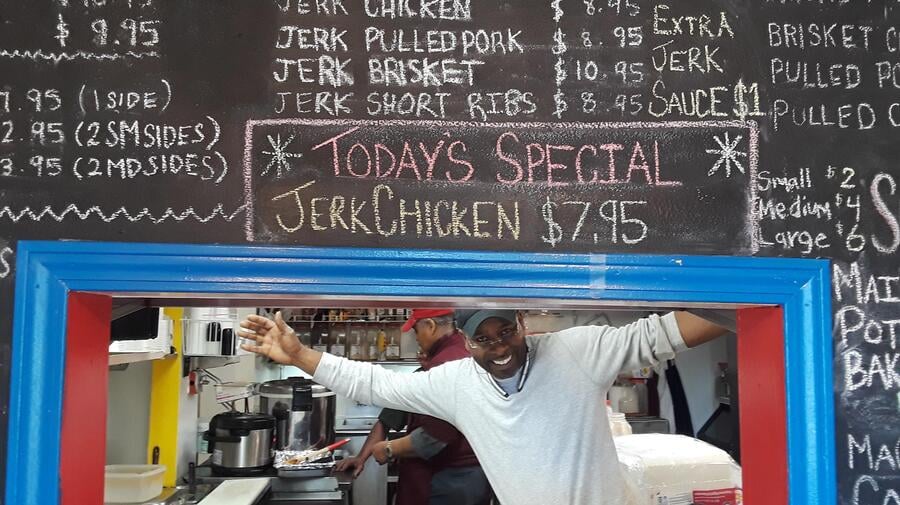 $ 9.95
7.95 (1 SIDE)
2.95 (2 SM SIDES)
3.95 (2 MD SIDES)
JERK CHICKEN $ 8.95
JERK PULLED PORK $ 8.95
JERK BRISKET $ 10.95
JERK SHORT RIBS $ 8.95
EXTRA
JERK
SAUCE $1
BRISKET
PULLED
PULLED
TODAY'S SPECIAL
JERK CHICKEN $7.95
Small $2
Medium $4
Large $6
S
MA
POT
BAK
MA
CA